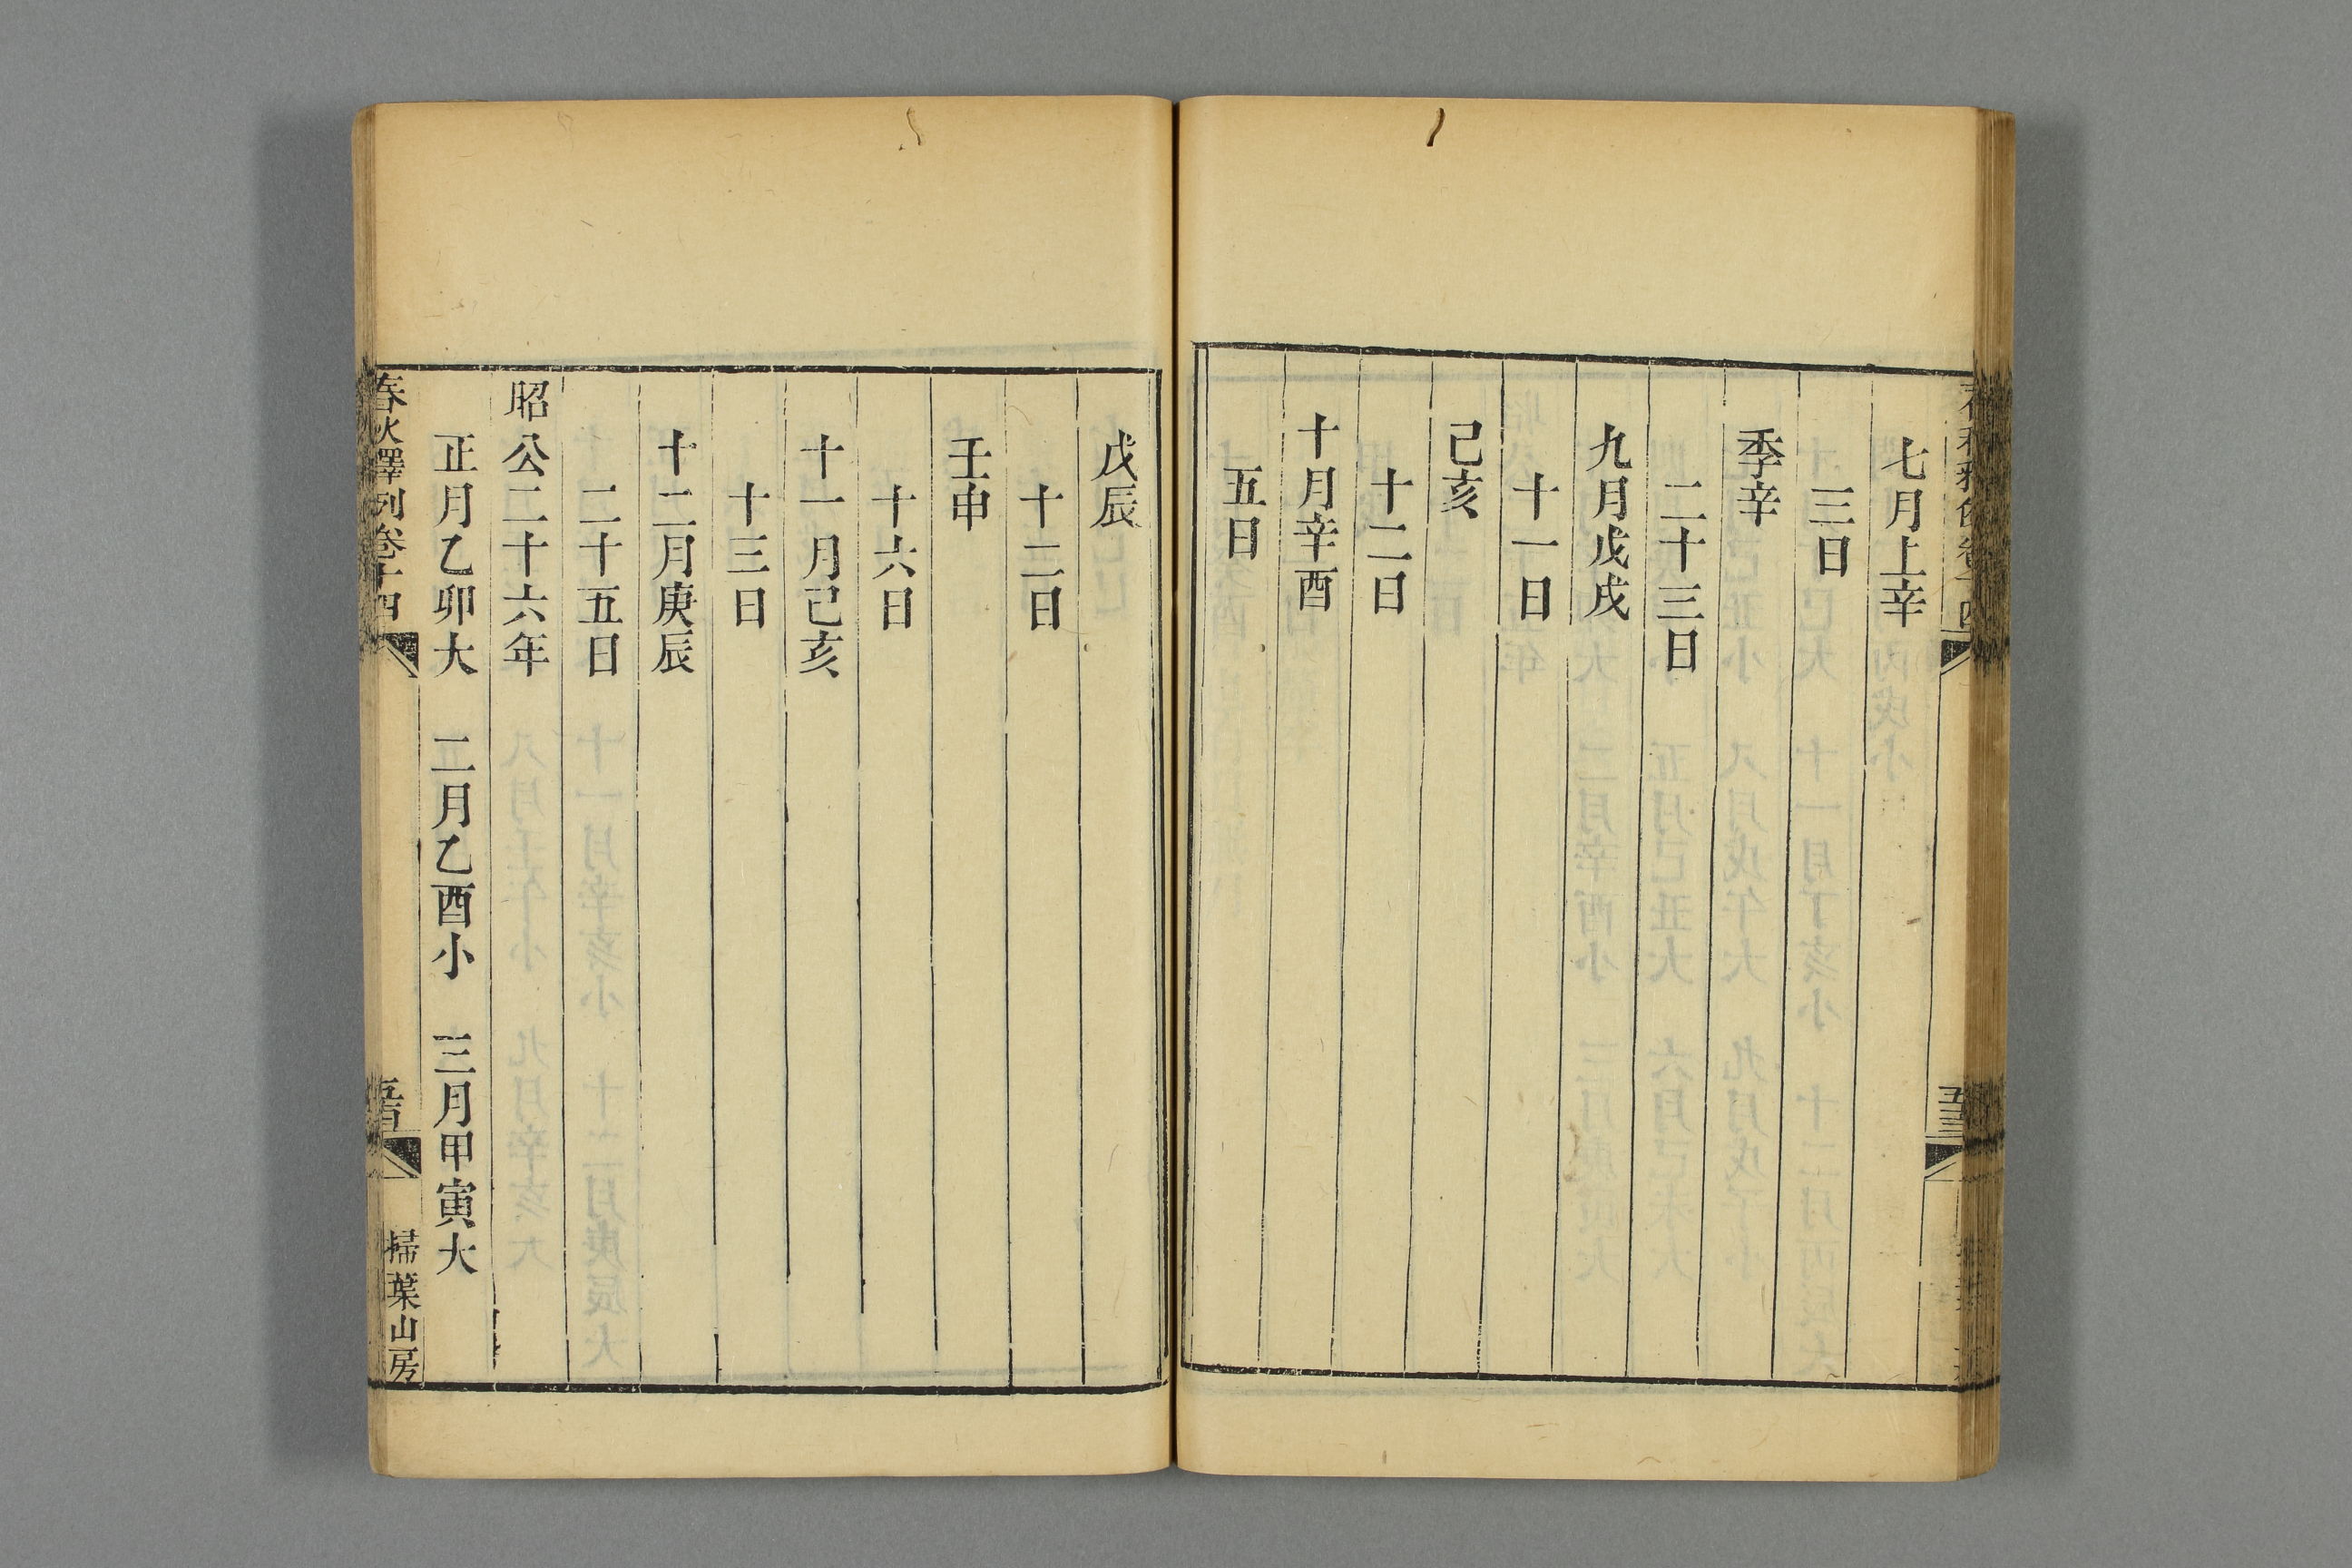 七月上辛
三日
季辛
二十三日
九月戊戌
十一日
己亥
十二日
十月辛酉
五日
戊辰
十二日
壬申
十六日
十一月己亥
十三日
十二月庚辰
二十五日
昭公二十六年
正月乙卯大 二月乙酉小 三月甲寅大
春秋釋例卷十四
掃葉山房